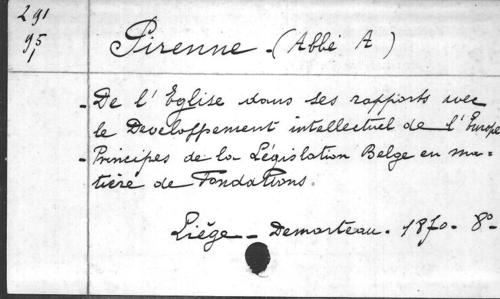 291
95
1
Pirenne - (Abbé A)
- De l'Eglise dans ses rapports avec
le Developpement intellectuel de l'Europe
- Principes de la Législation Belge en ma=
tière de Fondations.
Liège - Demarteau. 1870. 8°